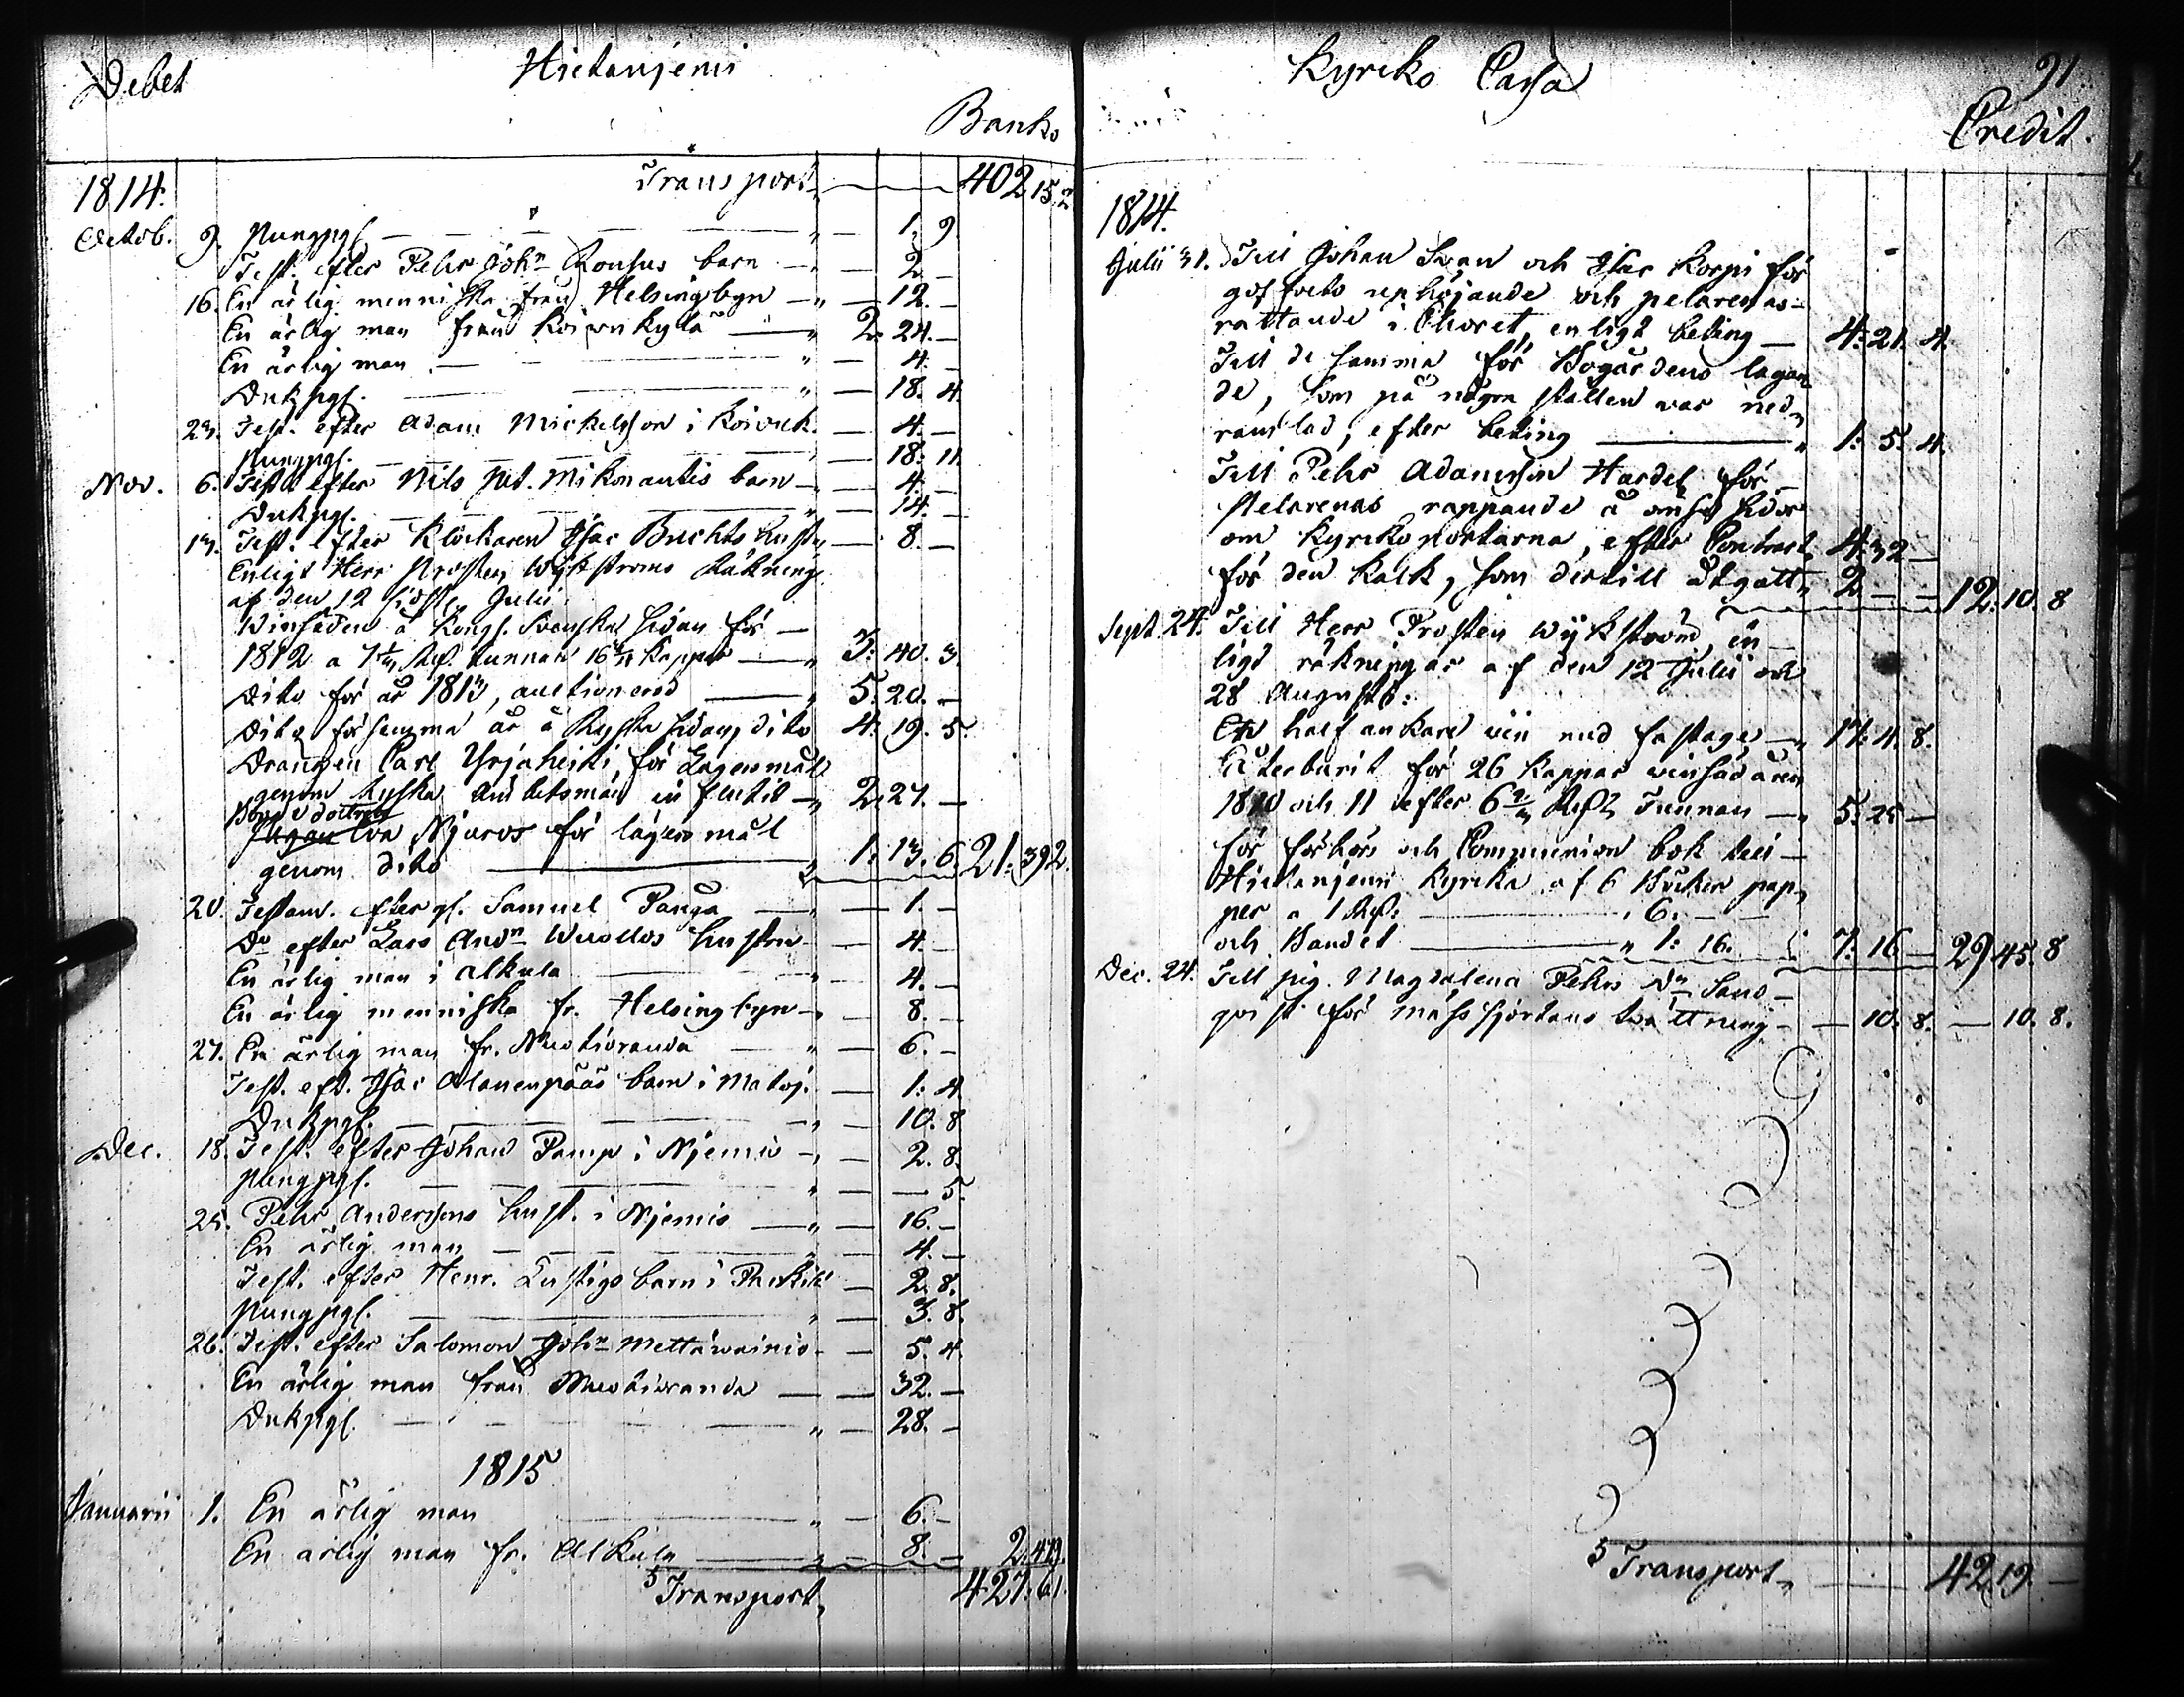 Debet Hietaniemi
Banko
Transport 402 15. 2
1814.
Octob. 9. Pungpgl. 1. 9
Test. efter Pehr Joh:n Rousus barn 2. —
16. En ärlig menniska från Helsingbyn 12. —
En ärlig man från Koivukylä 2. 24. —
En ärlig man 4. —
Dukpgl. 18. 4.
23. Test. efter Adam Mickelsson i Koivuk. 4. —
Pungpgl. 18. 11.
Nov. 6. Test. efter Nils Mikonantis barn 4. —
Dukpgl. 14. —
13. Test. efter Klockaren Isac Buchts hustru 8. —
Enligt Herr Prosten Wykströms Räkning
af den 12 sidstl. Julii.
Winsäden å Kongl. Svenska sidan för
1812 a Rd. tunnan Kappar 3. 40. 3.
Dito för år 1813, auctionerad 5. 20. —
Dito för samma år å Ryska sidan, dito 4. 19. 5
Drängen Carl Yrjäheiki, för Lägersmål
genom Ryska Ambetsmän in flutit 2. 27. —
Eva Njuros för lägersmål
genom dito 1. 13. 6. 21. 39 2.
20. Testam. efter gl. Samuel Panga 1. —
Do efter Lars And:n Wuollos hustru 4. —
En ärlig man i Alkula 4. —
En ärlig menniska fr. Helsingbyn 8. —
27. En ärlig man fr. Muotioranda 6. —
Test. eft. Isac Alanenpääs barn i Matoj. 1. 4
Dukpgl. 10. 8
Dec. 18. Test. efter Johan Pamp i Njemis 2. 8.
Pungpgl. — 5.
25. Pehr Anderssons hust. i Njemis 16. —
En ärlig man 4. —
Test. efter Henr. Lustigs barn i 2. 8.
Pungpgl. 3. 8.
26. Test. efter Salomon Joh:n Mettäwainio 5. 4.
En ärlig man från Muotioranda 32. —
Dukpgl. 28. —
1815
Januarii 1. En ärlig man 6. —
En ärlig man fr. Alkula 8. — 2. 47 9.
Transport 427. 6. 1.
Kyrko Cassa 91
Credit.
1814.
Julii 31. Till Johan Swan och Isac Korpi för
golfvets upphöjande och pelarenas
rättande i Choret, enligt beting 4. 21. 4.
Till de samma för Bogårdens lagan
de, som på några ställen var ned
ramlad, efter beting 1. 5. 4.
Till Pehr Adamsson Hardel för
Pelarenas rappande å ömse sidor
om Kyrkoportarna, efter Contract 4. 32 —
för den Kalk, som dertill åtgått 2 — — 12. 10. 8
Sept. 24. Till Herr Prosten Wykström, en
ligt räkningar af den 12 Julii och
28 Augusti:
Ett half ankare vin med fastage 17. 4. 8.
Återburit för 26 Kappar vinsäd åren
1810 och 11 efter Rd. Tunnan 5. 25 —
för förhörs och Communion bok till
Hietaniemi Kyrka af 6 Böcker pap
per a 1 Rd: 6. — —
och Bandet 1. 16. 7. 16 — 29 45. 8
Dec. 24. Till pig. Magdalena Pehrs D:r Sand
qvist för mässskjortans tvättning — 10. 8. — 10. 8.
Transport 42. 19. —